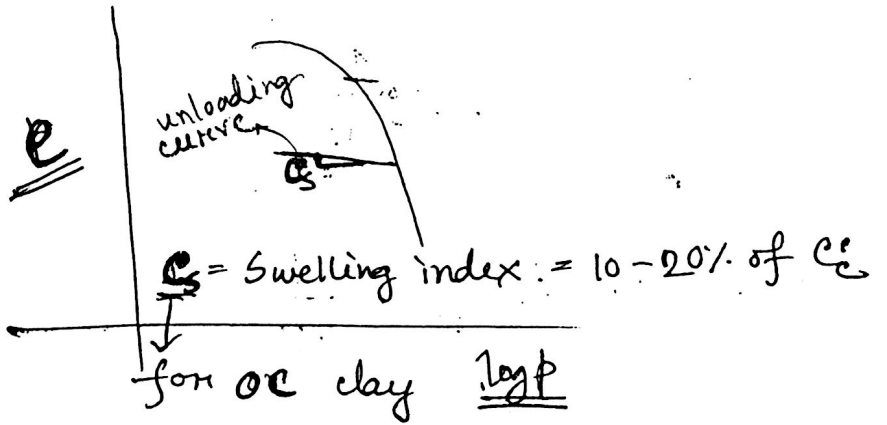 unloading
curve
e
Cs
Cs = Swelling index = 10-20% of Cc
for OC clay
log p